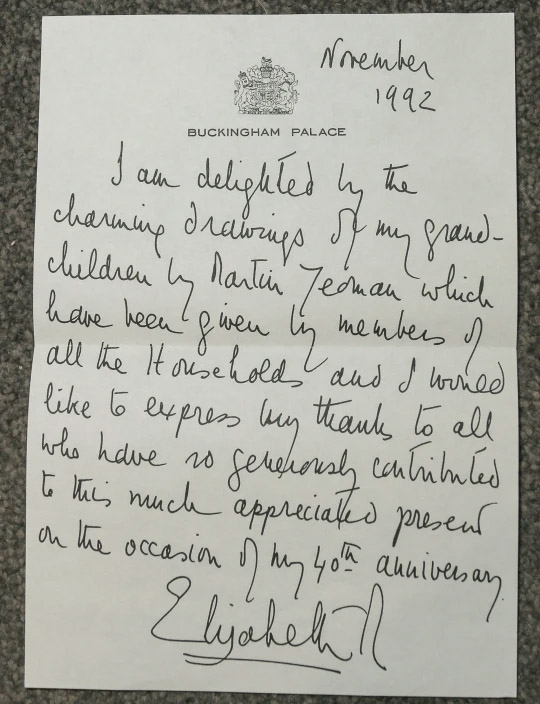 November
1992
BUCKINGHAM PALACE
I am delighted by the
charming drawings of my grand-
children by Martin Yeoman which
have been given by members of
all the Households and I would
like to express my thanks to all
who have so generously contributed
to this much appreciated present
on the occasion of my 40th anniversary
Elizabeth R